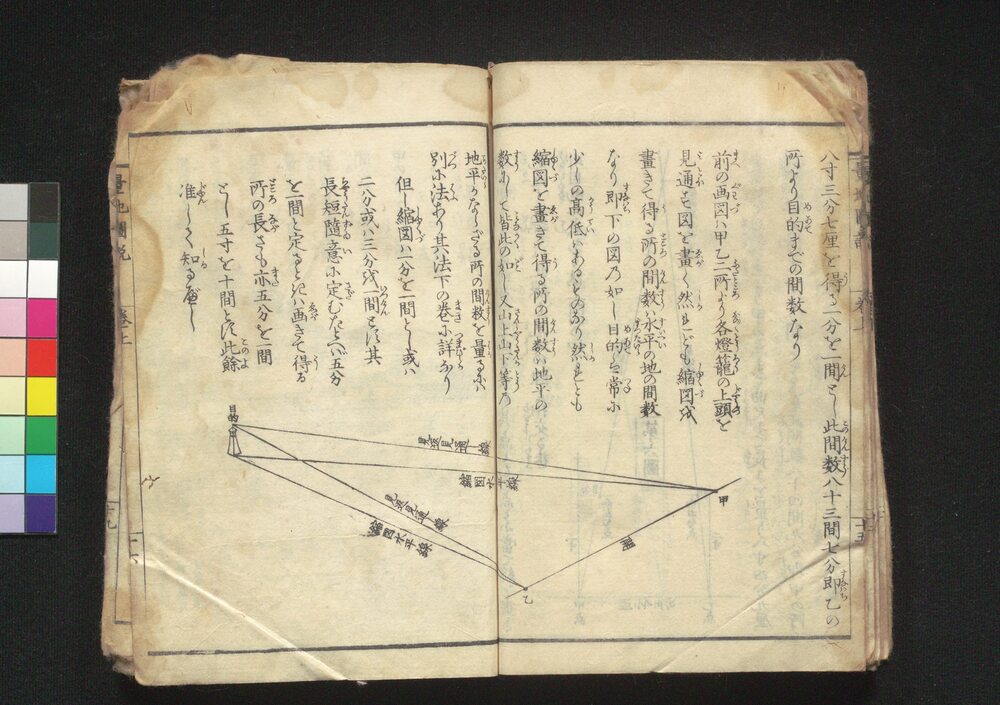 八寸三分七厘を得る一分を一間とし此間數八十三間七分即乙の
所より目的までの間数なり
前の画図ハ甲乙二所より各燈籠の上頭を
見通て図を畫く然れども縮図を
畫きて得る所の間数ハ水平の地の間数
なり即下の図乃如し目的と常に
少しの高低ハあるものあり然れとも
縮図を畫きて得る所の間数ハ地平の
数にして皆此の如し又山上山下等乃
地平ならざる所の間数を量るにハ
別に法あり其法下の巻に詳なり
但し縮図ハ一分を一間とし或ハ
二分或ハ三分を一間とす其
長短隨意に定むたとへバ五分
を一間と定るときハ画きて得る
所の長さも亦五分を一間
とし五寸を十間とす此餘
准しく知るべし
目的
見渡見通線
縮図水平線
見渡見通線
縮図水平線
甲
乙
量地圖説
巻上